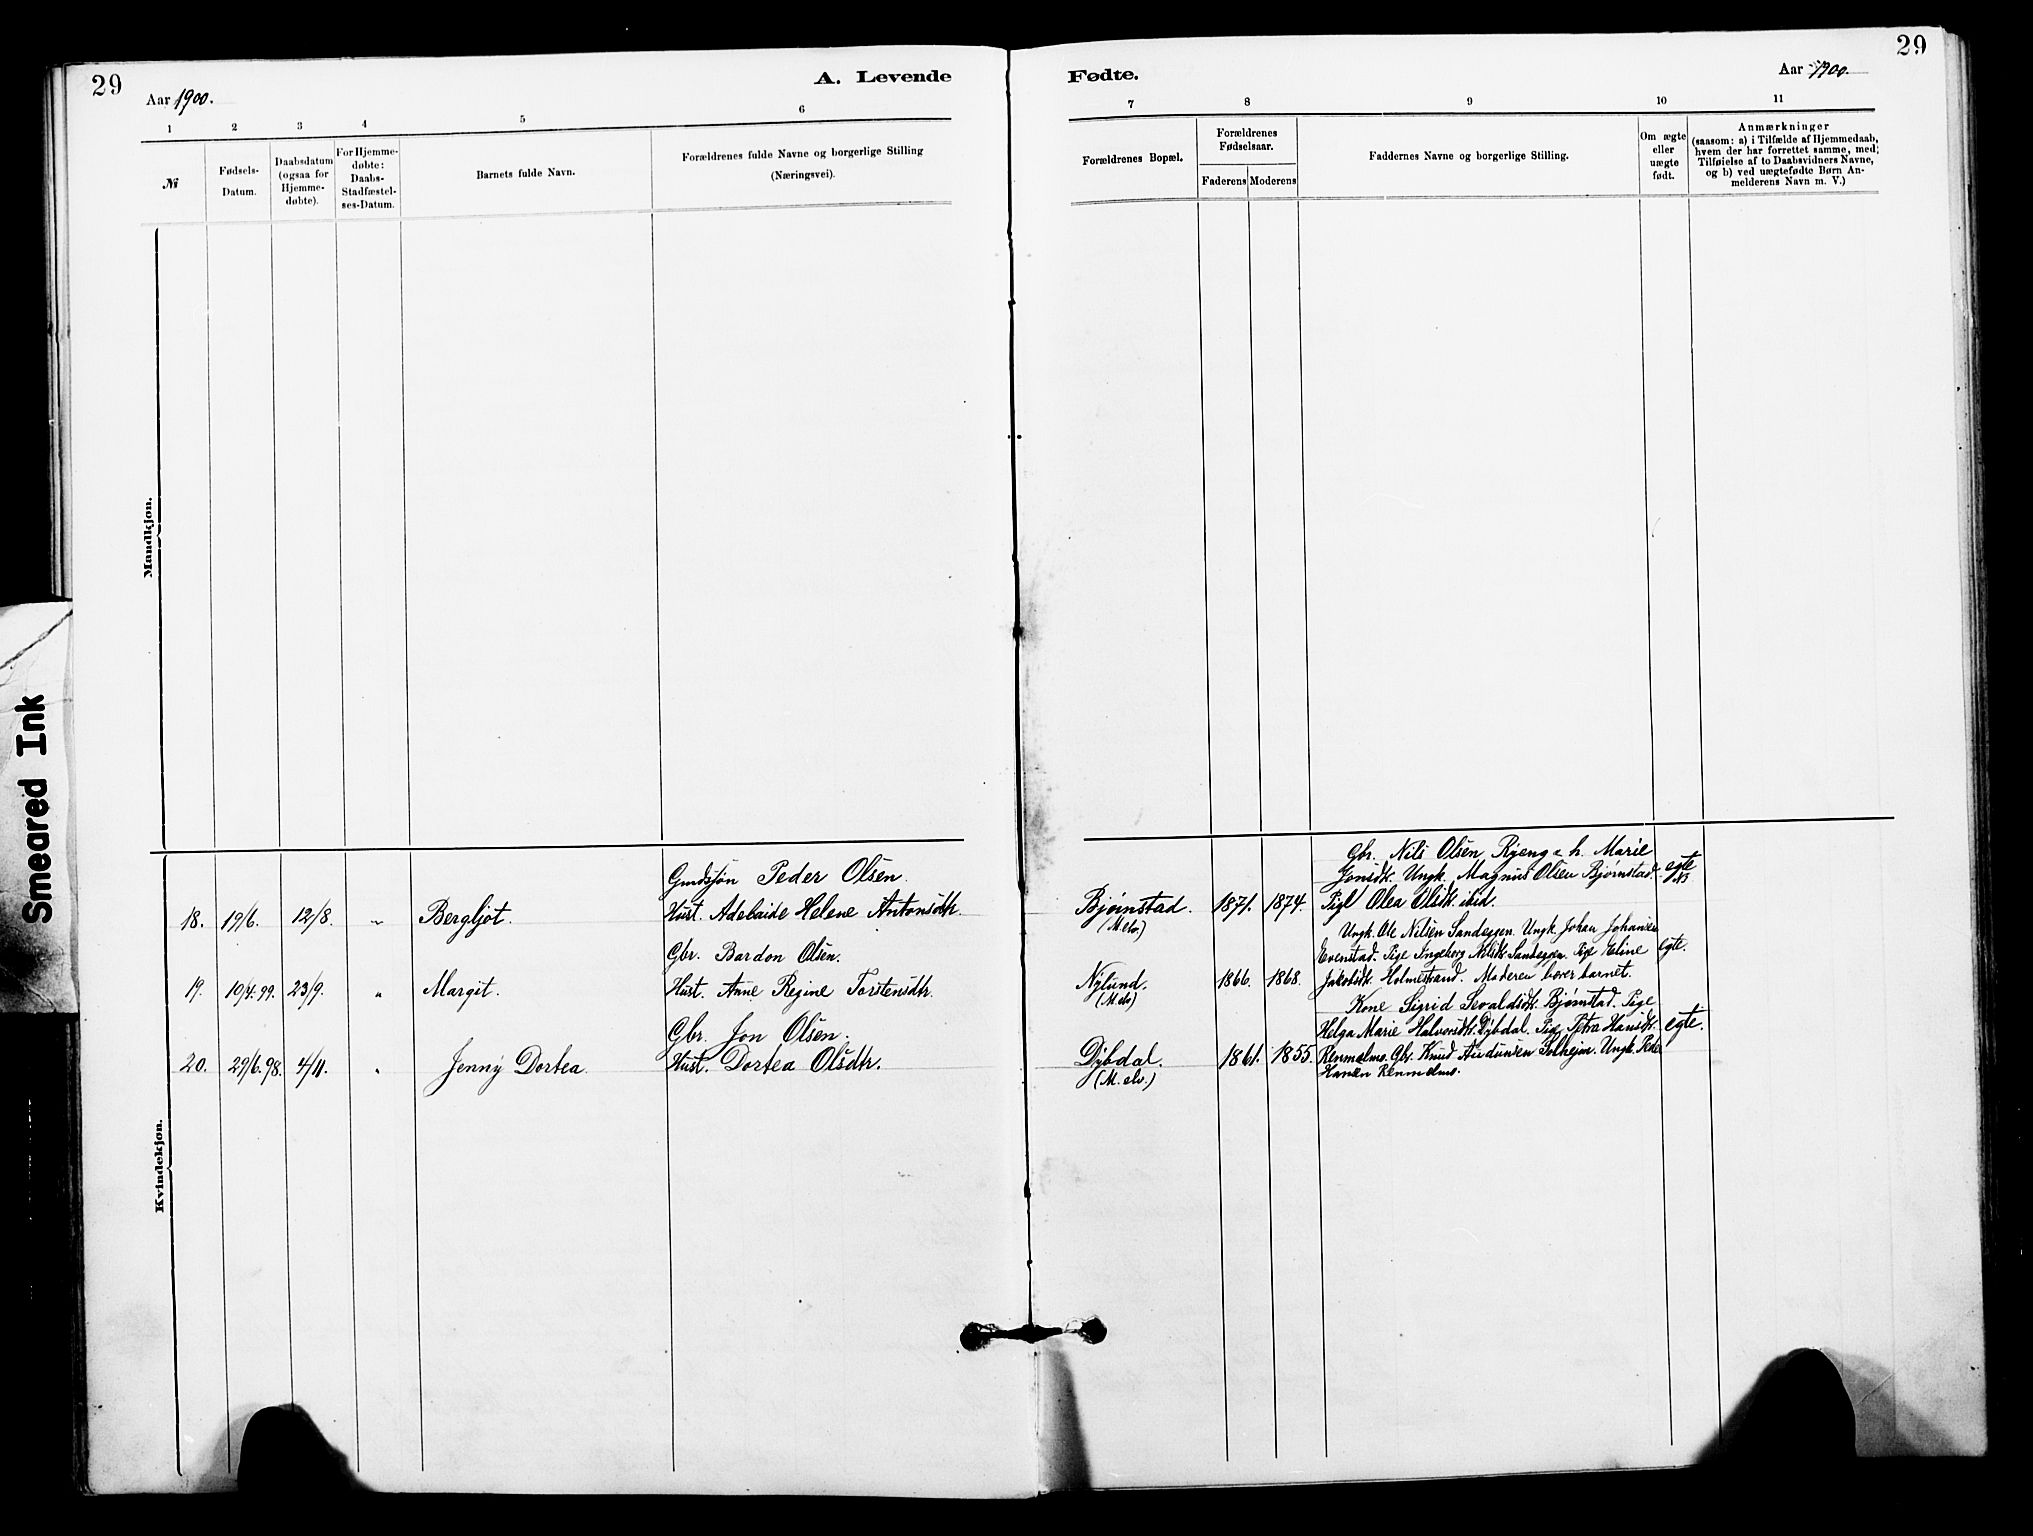 29
A. Levende
Fødte.
29
Aar 1900.
Aar 1900.
1 2 3 4 5 6
7 8 9 10 11
№
Fødsels-
Datum.
Daabsdatum
(ogsaa for
Hjemme-
døbte).
For Hjemme-
døbte:
Daabs-
Stadfæstel-
ses-Datum.
Barnets fulde Navn.
Forældrenes fulde Navne og borgerlige Stilling
(Næringsvei).
Forældrenes Bopæl.
Forældrenes
Fødselsaar.
Faderens Moderens
Faddernes Navne og borgerlige Stilling.
Om ægte
eller
uægte
født.
Anmærkninger
(saasom: a) i Tilfælde af Hjemmedaab,
hvem der har forrettet samme, med
Tilføielse af to Daabsvidners Navne,
og b) ved uægtefødte Børn An-
melderens Navn m. V.)
Mandkjøn.
Smeared Ink
Kvindekjøn.
Gmdssjøn Peder Olsen.
18. 19/6. 12/8. " Bergljot. Hust. Adelaide Helene Antonsdtr.
Bjørnstad. 1871. 1874.
(M.elv.)
Gbr. Nils Olsen Ryeng o h. Marie
Jonsdtr. Ungk. Magnus Olsen Bjørnstad.
Pige Olea Olsdtr. ibid.
egte
Gbr. Bardon Olsen.
19. 10/4.99. 23/9. " Margit. Hust. Anne Regine Torstensdtr.
Nylund. 1866. 1868.
(M.elv)
Ungk. Ole Nilsen Sandeggen. Ungk. Johan Johansen
Evenstad. Pige Ingeborg Nilsdtr. Sandeggen. Pige Eline
Jakobsdtr. Holmestrand. Moderen bærer barnet.
egte.
Gbr. Jon Olsen.
20. 29/6.98. 4/11. " Jenny Dortea. Hust. Dortea Olsdtr.
Dybdal. 1861. 1855.
(M.elv.)
Kone Sigrid Sevaldsdtr. Bjørnstad. Pige
Helga Marie Halvorsdtr. Dybdal. Pige Petra Hansdtr.
Renmælmo. Gbr. Knud Audunsen Solheim. Ungk. Peder
Hansen Renmælmo.
egte.